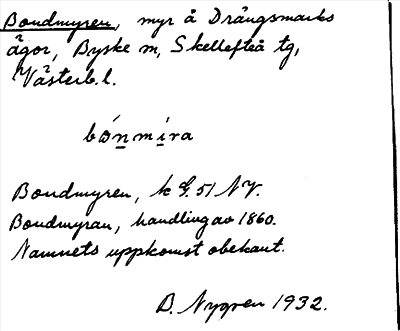 Bondmyren, myr å Drängsmarks
ägor, Byske sn, Skellefteå tg,
Västerb. l.
bónmi̲ra
Bondmyren, k G. 51 NV.
Bondmyran, handling av 1860.
Namnets uppkomst obekant.
B. Nygren 1932.